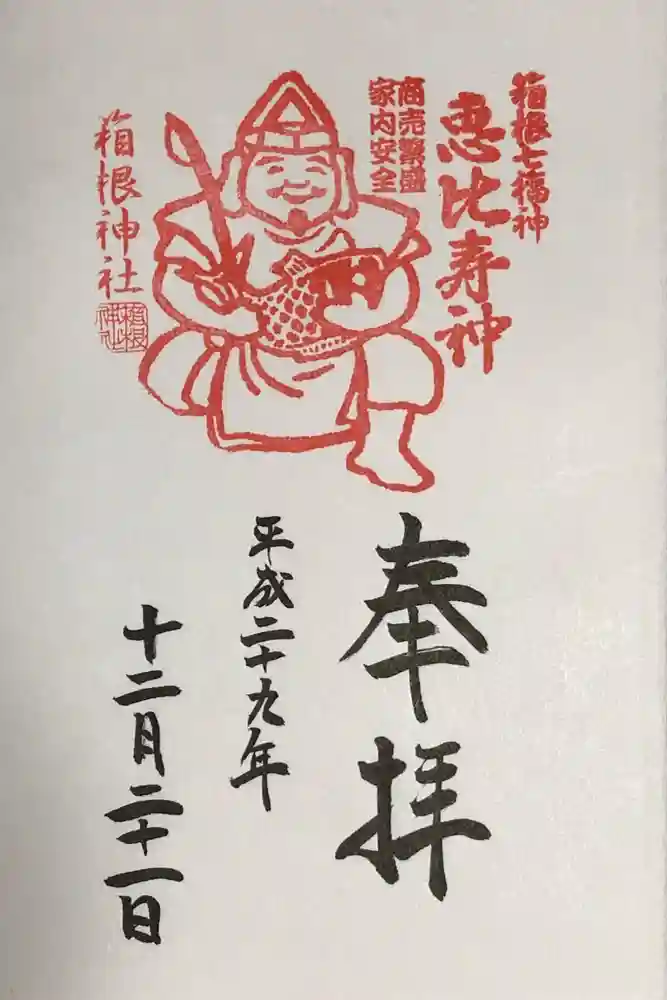 箱根七福神
恵比寿神
商売繁盛
家内安全
箱根神社
箱根
神社
奉拝
平成二十九年
十二月二十一日